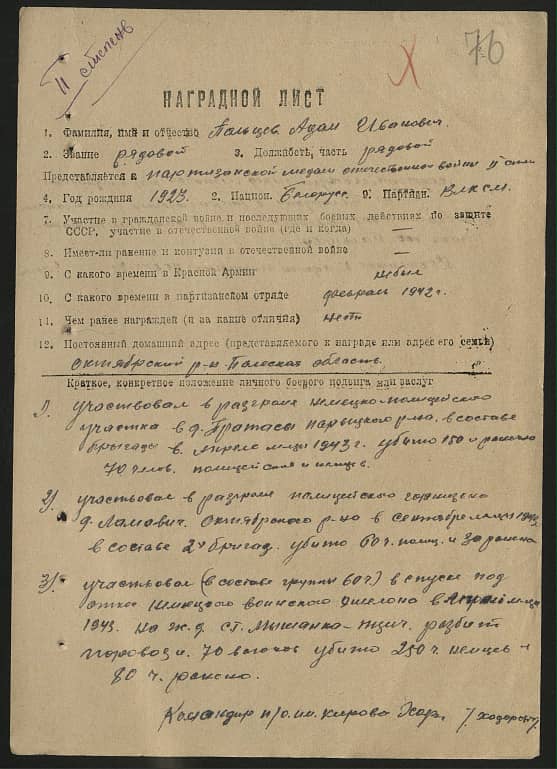 II степень
76
НАГРАДНОЙ ЛИСТ
1. Фамилия, имя и отчество Пальцев Адам Иванович
2. Звание рядовой 3. Должность, часть рядовой
Представляется к партизанской медали отечественной войны II степ
4. Год рождния 1923 2. Национ. Белорус. 9. Партийн. ВЛКСМ.
7. Участие в гражданской войне и последующих боевых действиях по защите
СССР, участие в отечественной войне (где и когда) —
8. Имеет-ли ранение и контузии в отечественной войне —
9. С какого времени в Красной Армии не был
10. С какого времени в партизанском отряде февраль 1942 г.
11. Чем ранее награждей (и за какие отличия) нет
12. Постоянный домашний адрес (представляемого к награде или адрес его семьи)
Октябрский р-н Полеская область
Краткое, конкретное положение личного боевого подвига или заслуг
1). участвовал в разгроме немецко-полицейского
участка в д. Протасы р-на, в составе
бригады в апреле м-ца 1943 г. убито 150 и ранено
70 челов. полицейских и немцев.
2). участвовал в разгроме полицейского гарнизона
д. Ламавич. Октябрского р-на в сентябре м-ца 1942
в составе 2х бригад. убито 60 ч. полиц. и ранено
3). участвовал (в составе группы 60 ч) в спуске под
откос немецкого воинского эшелона в м-ца
1943. на ж.д. ст. Мышанка-Птич. разбит
паровоз и 70 вагонов убито 250 ч. немцев и
80 ч. ранено.
Командир п/о. им. Кирова